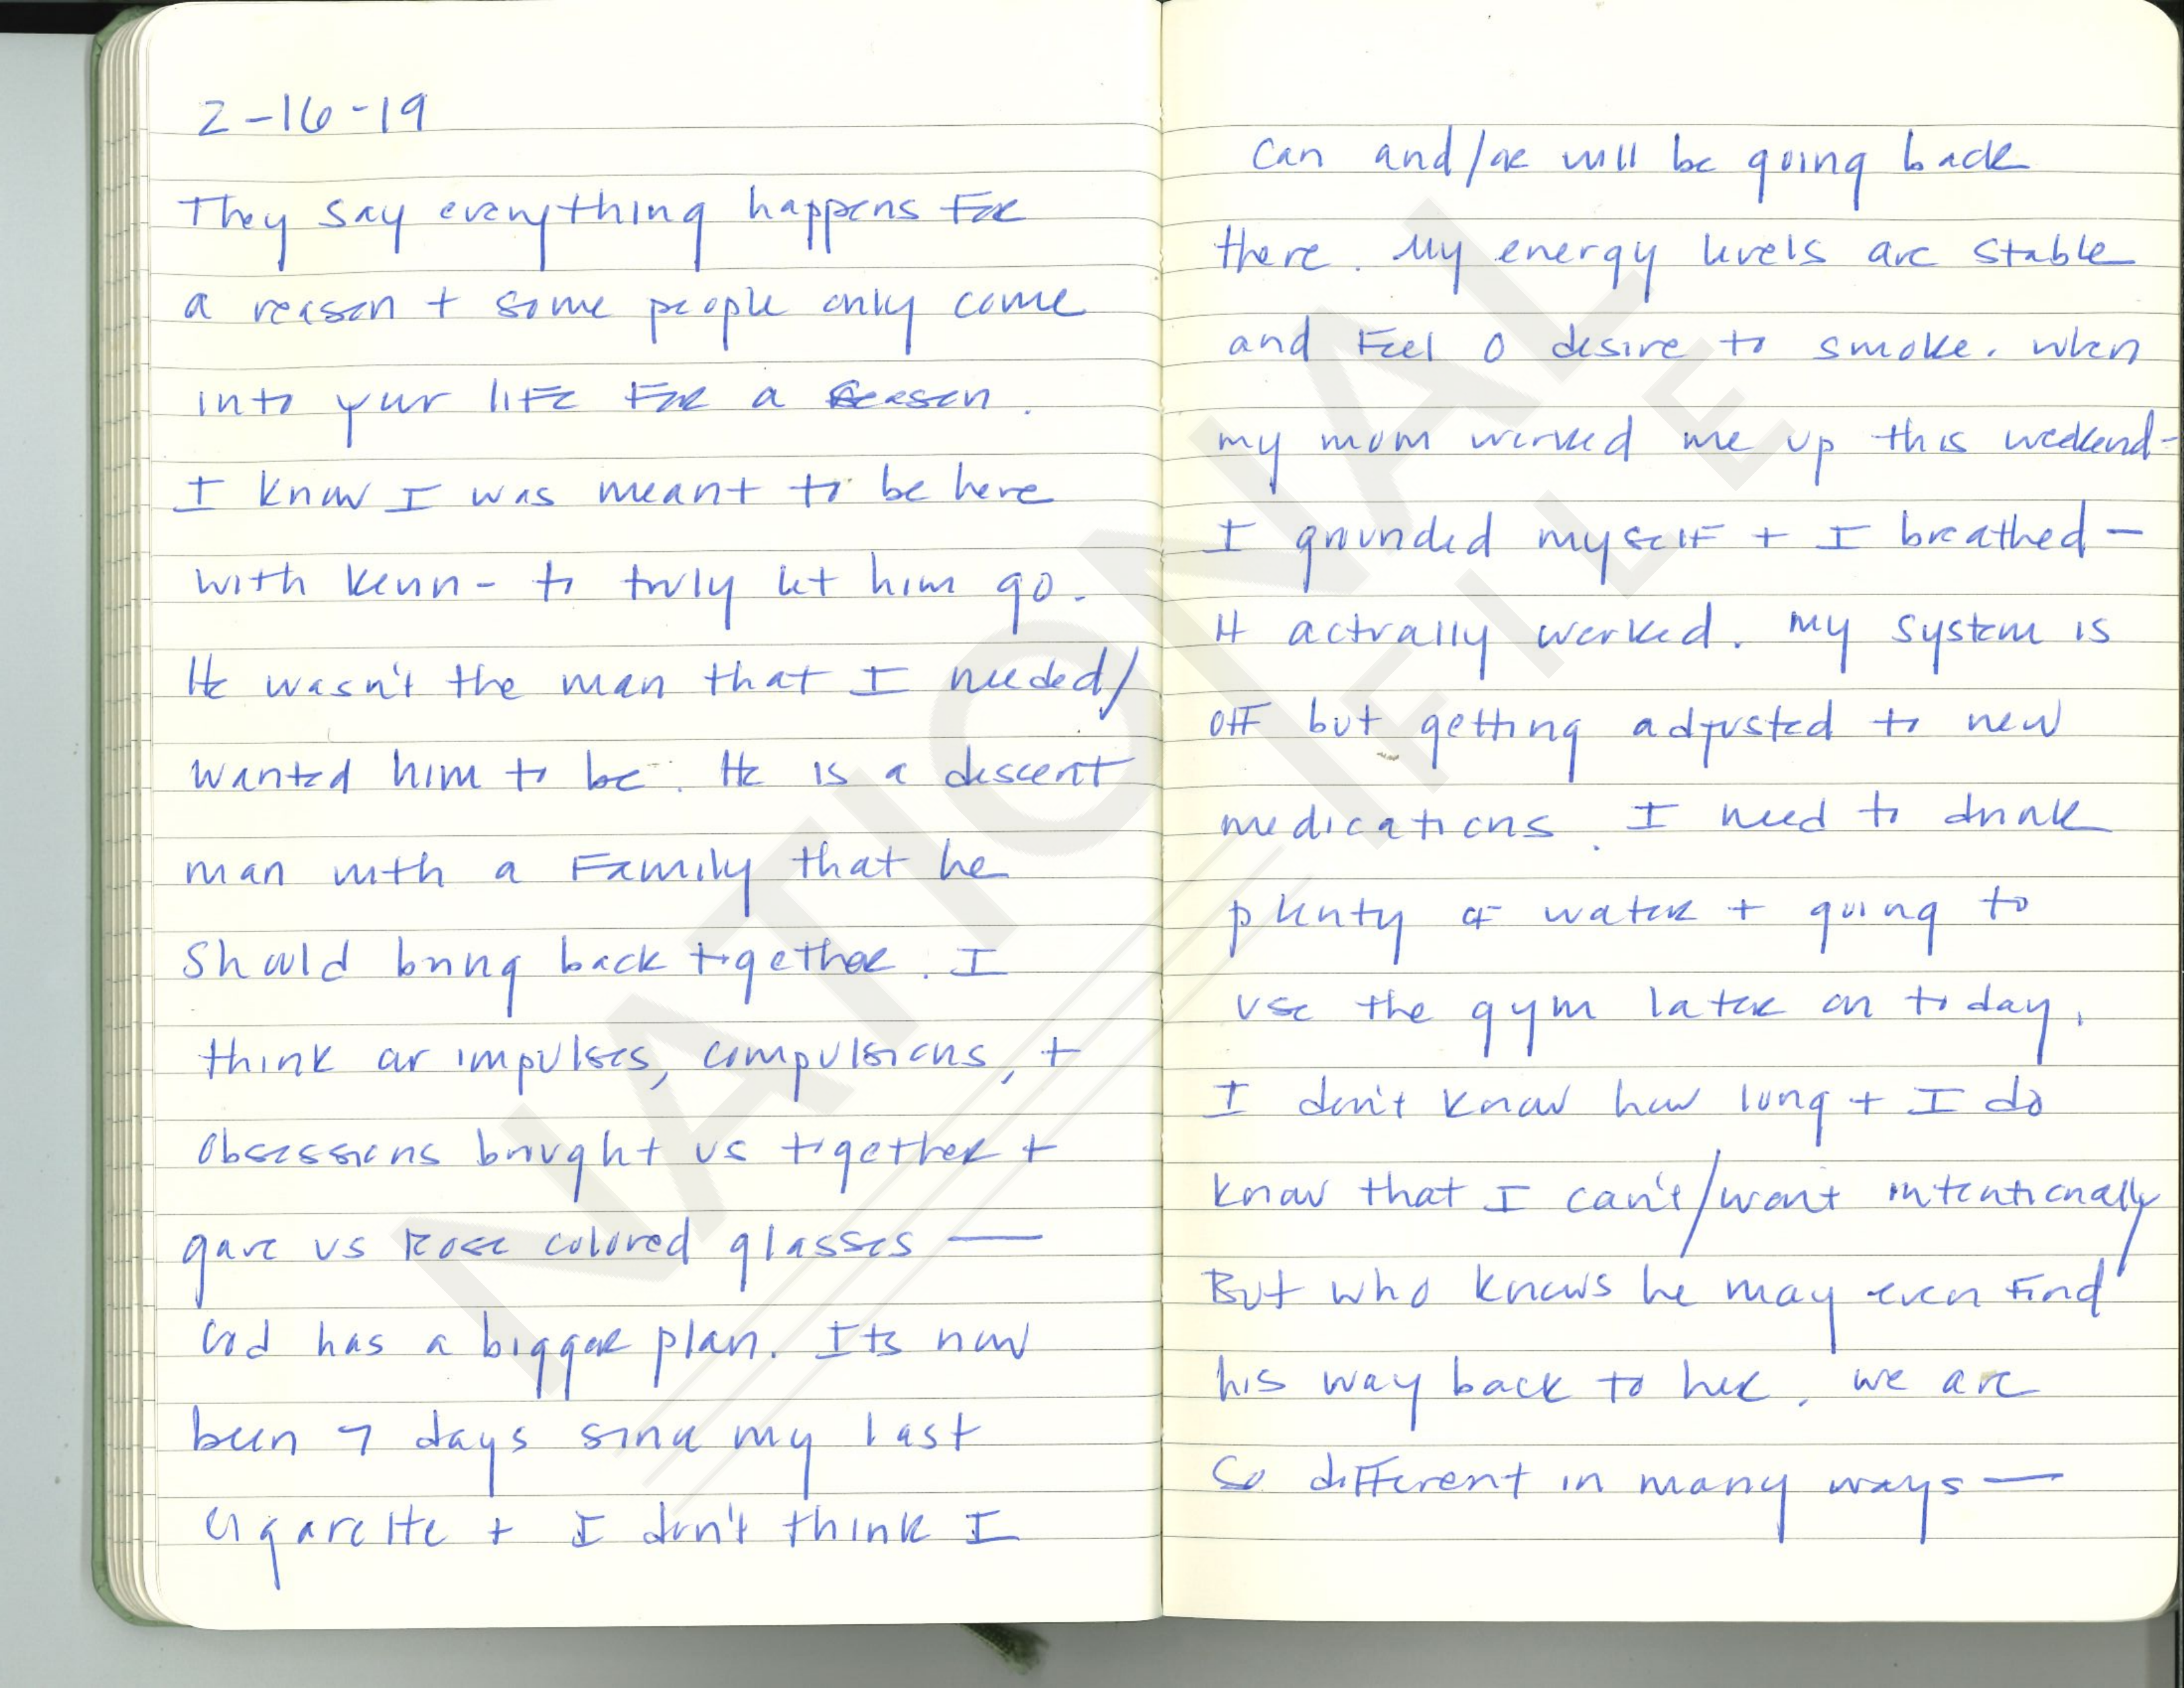 2-16-19
They say everything happens For
a reason + some people only come
into your life For a Season.
I know I was meant to be here
with Kenn- to truly let him go.
He wasn't the man that I needed/
wanted him to be. He is a descent
man with a Family that he
should bring back together. I
think our impulses, compulsions, +
obsessions brought us together +
gave us Rose colored glasses —
God has a bigger plan. Its now
been 7 days since my last
cigarette + I don't think I
can and/or will be going back
there. My energy levels are stable
and Feel 0 desire to smoke. when
my mom worked me up this weekend-
I grounded myself + I breathed —
It actually worked. My system is
off but getting adjusted to new
medications. I need to drink
plenty of water + going to
use the gym later on today.
I don't know how long + I do
know that I can't/wont intentionally
But who knows he may even find
his way back to her. we are
So different in many ways —
NATIONAL
FILE